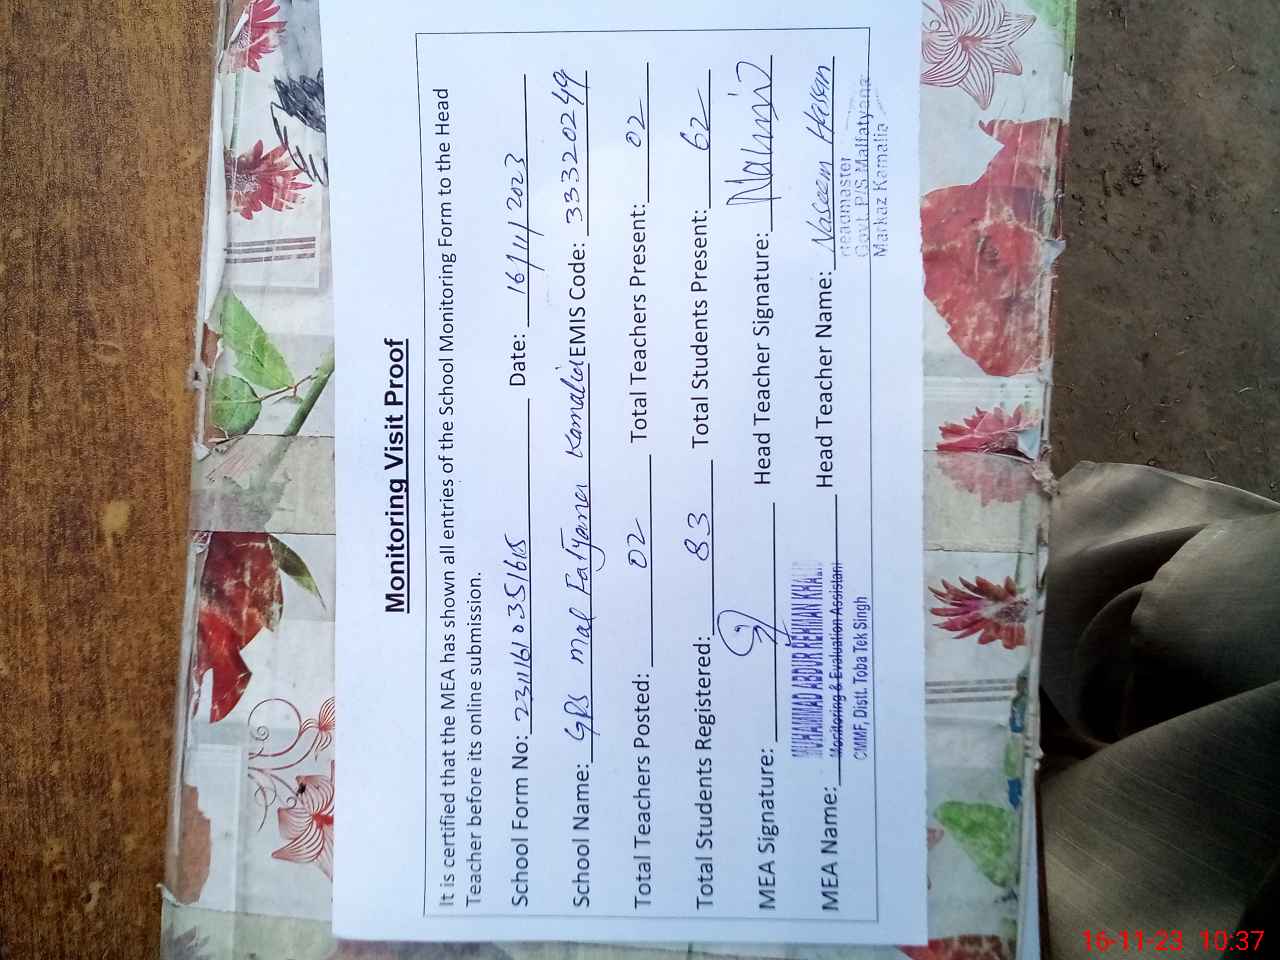 Monitoring Visit Proof
It is certified that the MEA has shown all entries of the School Monitoring Form to the Head
Teacher before its online submission.
School Form No: 23111610351615 Date: 16/11/2023
School Name: GPS Mal Fatyana Kamalia EMIS Code: 33320249
Total Teachers Posted: 02 Total Teachers Present: 02
Total Students Registered: 83 Total Students Present: 62
MEA Signature: Head Teacher Signature:
MEA Name: MUHAMMAD ABDUR REHMAN Head Teacher Name: Naseem Hassan
Monitoring & Evaluation Assistant
CMMF, Distt. Toba Tek Singh
Headmaster
Govt. P/S Malfatyana
Markaz Kamalia
16-11-23 10:37